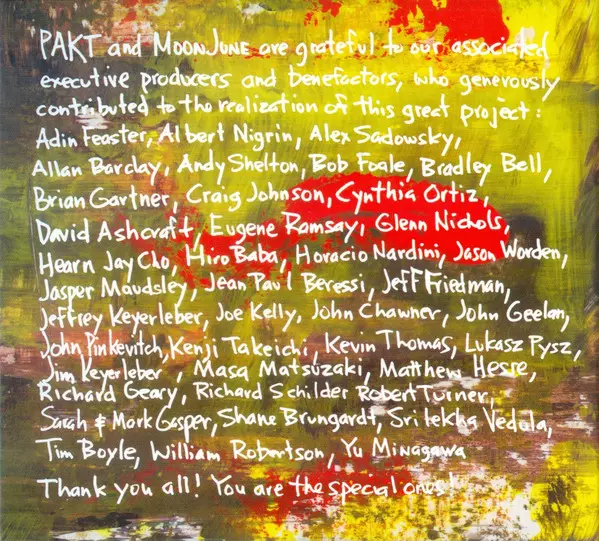 PAKT and MOONJUNE are grateful to our associated
executive producers and benefactors, who generously
contributed to the realization of this great project:
Adin Feaster, Albert Nigrin, Alex Sadowsky,
Allan Barclay, Andy Shelton, Bob Foale, Bradley Bell,
Brian Gartner, Craig Johnson, Cynthia Ortiz,
David Ashcraft, Eugene Ramsay, Glenn Nichols,
Hearn Jay Cho, Hiro Baba, Horacio Nardini, Jason Worden,
Jasper Maudsley, Jean Paul Beressi, Jeff Friedman,
Jeffrey Keyerleber, Joe Kelly, John Chawner, John Geelan,
John Pinkevitch, Kenji Takeichi, Kevin Thomas, Lukasz Pysz,
Jim Keyerleber, Masa Matsuzaki, Matthew Hesse,
Richard Geary, Richard Schilder Robert Turner,
Sarah & Mark Gasper, Shane Brungardt, Srilekha Vedula,
Tim Boyle, William Robertson, Yu Minagawa
Thank you all! You are the special ones!